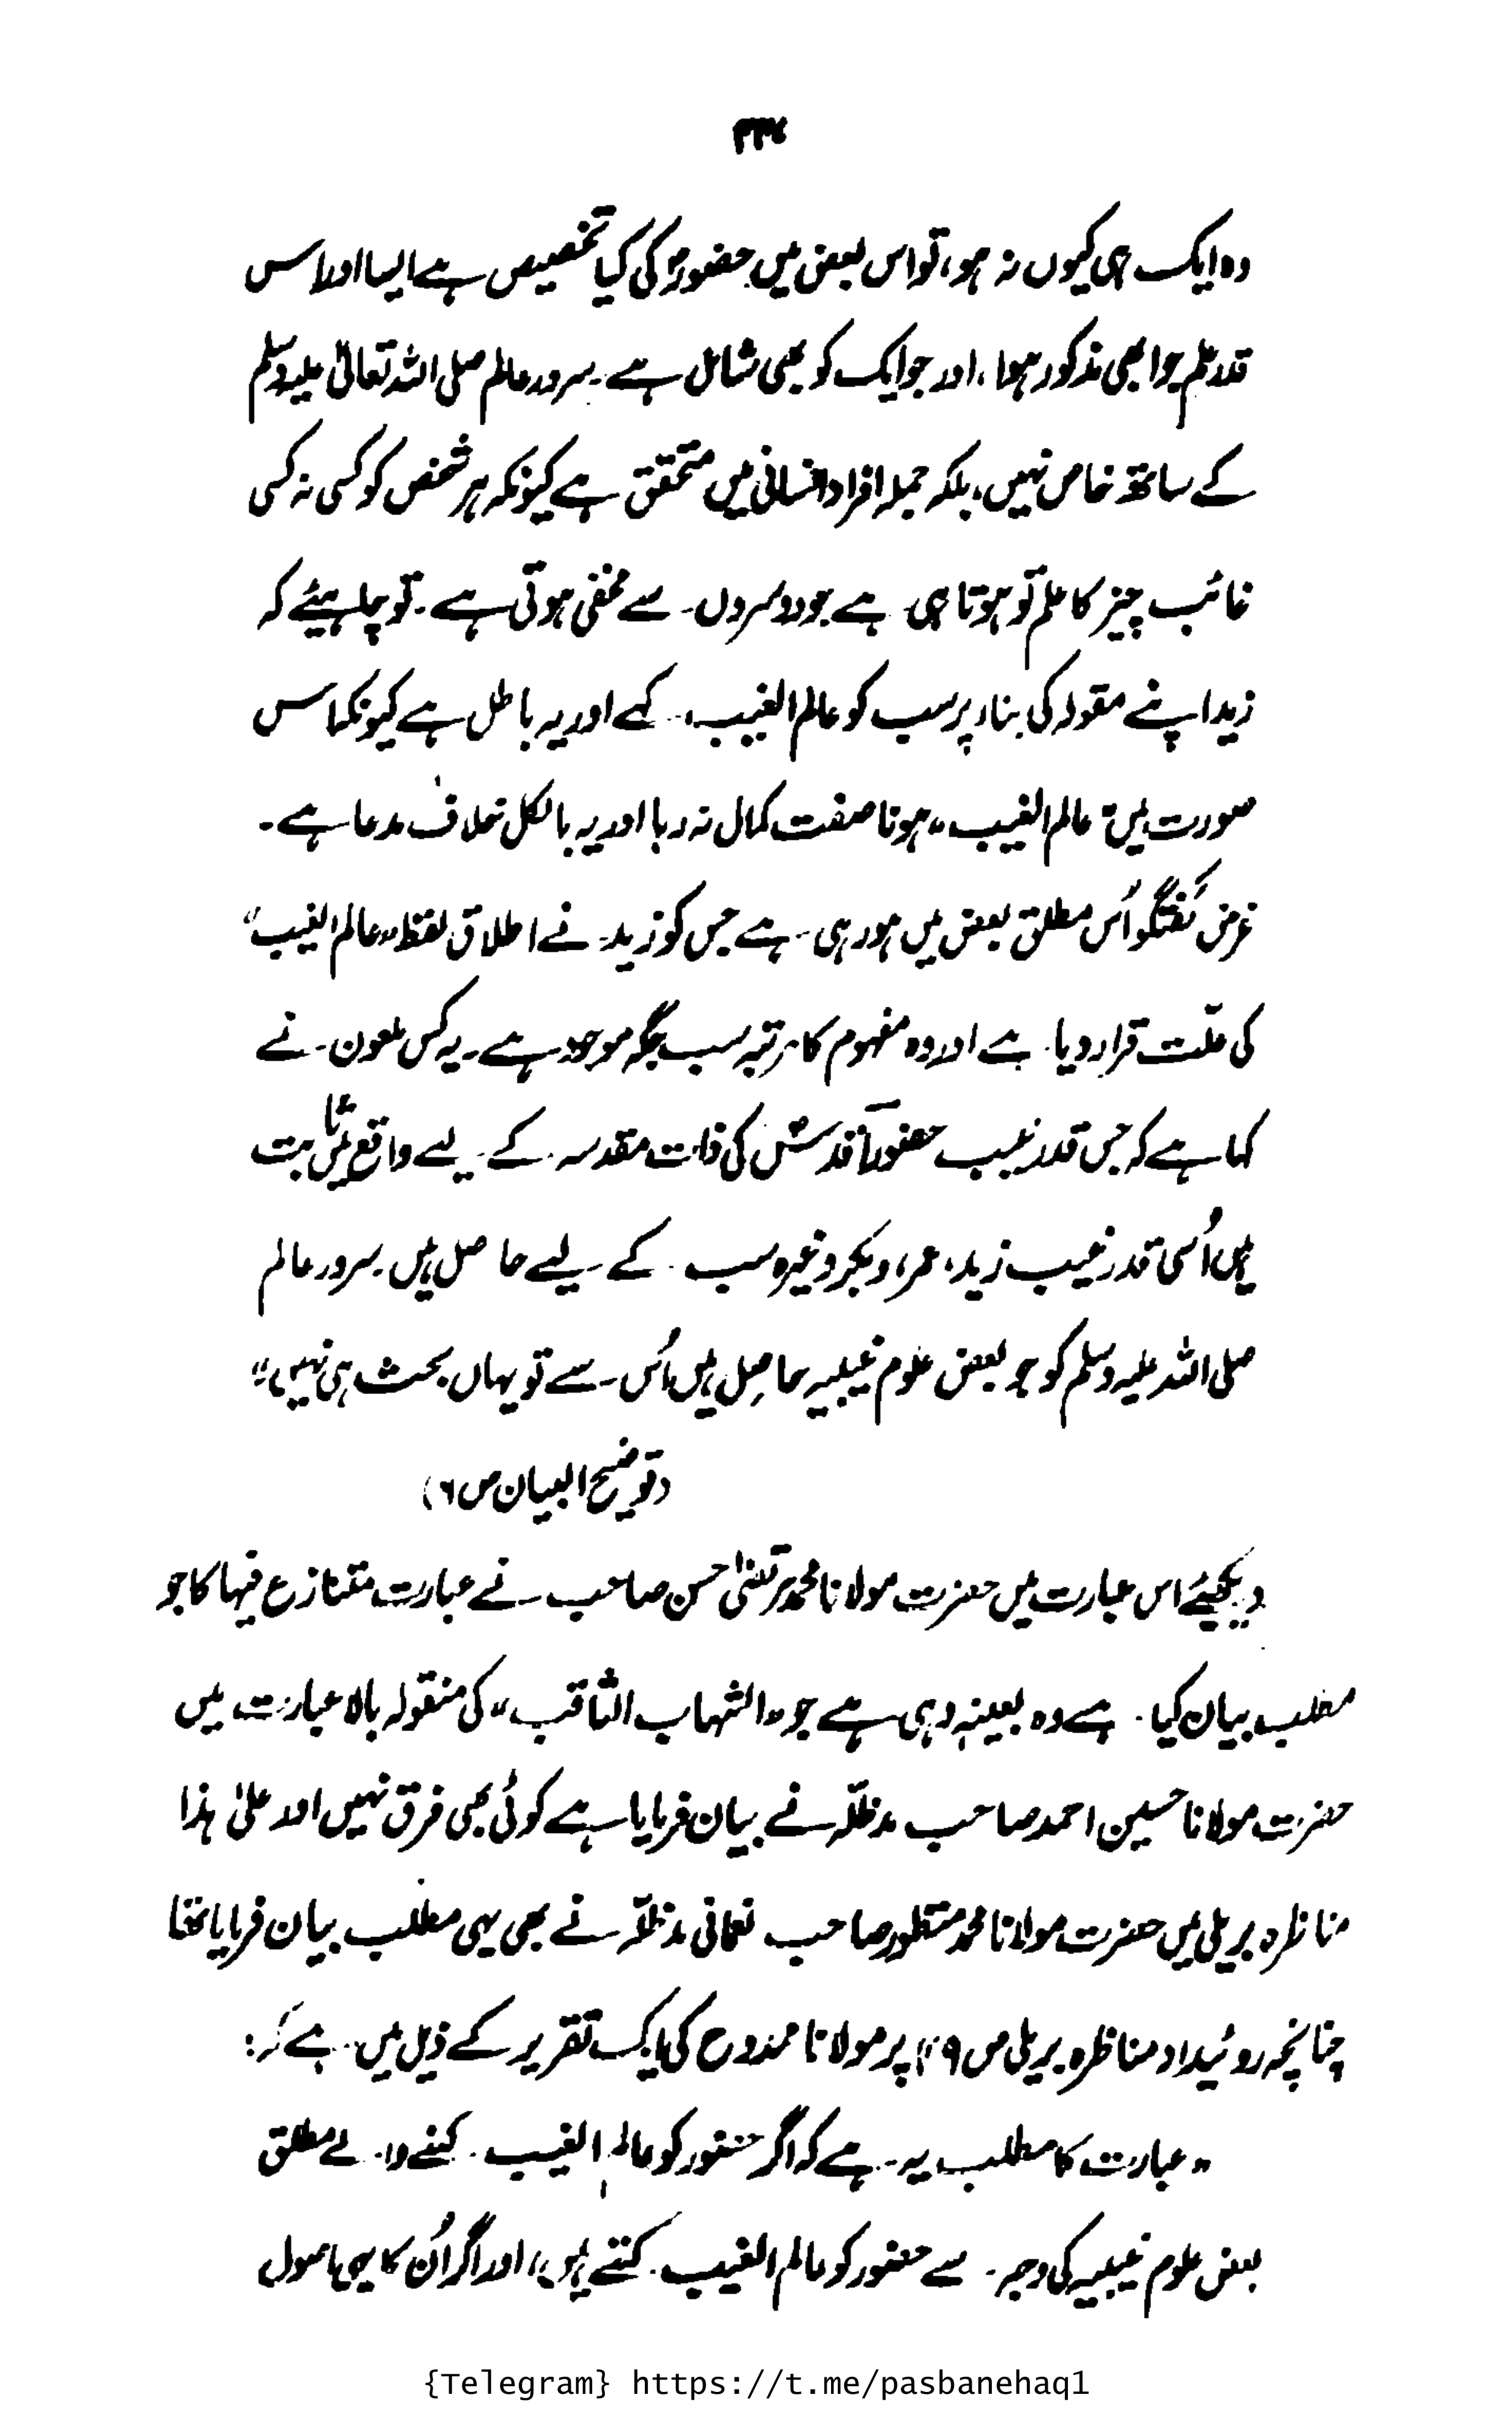 وہ ایک ہی کیوں نہ ہو، تو اس بعض میں حضورؐ کی کیا تخصیص ہے ایسا اور اس
قدر علم جو ابھی مذکور ہوا، اور جو ایک کو بھی شامل ہے۔ سرور عالم صلی اللہ تعالیٰ علیہ وسلم
کے ساتھ خاص نہیں، بلکہ جملہ افراد انسانی میں متحقق ہے کیونکہ ہر شخص کو کسی نہ کسی
غائب چیز کا علم تو ہوتا ہی ہے جو دوسروں سے مخفی ہوتی ہے۔ تو چاہیئے کہ
زید اپنے مقولہ کی بناء پر سب کو عالم الغیب کہے اور یہ باطل ہے کیونکہ اس
صورت میں "عالم الغیب" ہونا صفت کمال نہ رہا اور یہ بالکل خلاف مدعا ہے۔
غرض گفتگو اُس مطلق بعض میں ہو رہی ہے جس کو زید نے اطلاق لفظ "عالم الغیب"
کی علّت قرار دیا ہے اور وہ مفہوم کا مرتبہ سب جگہ موجود ہے۔ یہ کس ملعون نے
کہا ہے کہ جس قدر غیب حضور اقدسؐ کی ذات مقدسہ کے لیے واقع میں ثابت
ہیں اُسی قدر غیب زید، عمر، و بکر وغیرہ سب کے لیے حاصل ہیں۔ سرور عالم
صلی اللہ علیہ وسلم کو جو بعض علوم غیبیہ حاصل ہیں اُس سے تو یہاں بحث ہی نہیں"
(توضیح البیان ص ۶)
دیکھیئے اس عبارت میں حضرت مولانا محمد مرتضیٰ حسن صاحب نے عبارت متنازع فیہا کا جو
مطلب بیان کیا ہے وہ بعینہٖ وہی ہے جو "الشہاب الثاقب" کی منقولہ بالا عبارت میں
حضرت مولانا حسین احمد صاحب مدظلّہ نے بیان فرمایا ہے کوئی بھی فرق نہیں اور علیٰ ہذا
مناظرہ بریلی میں حضرت مولانا محمد منظور صاحب نعمانی مدظلّہ نے بھی یہی مطلب بیان فرمایا تھا
چنانچہ روئیداد مناظرہ بریلی ص پر مولانا ممدوح کی ایک تقریر کے ذیل میں ہے کہ:
"عبارت کا مطلب یہ ہے کہ اگر حضور کو عالم الغیب کہنے والے مطلق
بعض علوم غیبیہ کی وجہ سے حضور کو عالم الغیب کہتے ہیں، اور اگر اُن کا یہی اصول
{Telegram} https://t.me/pasbanehaq1